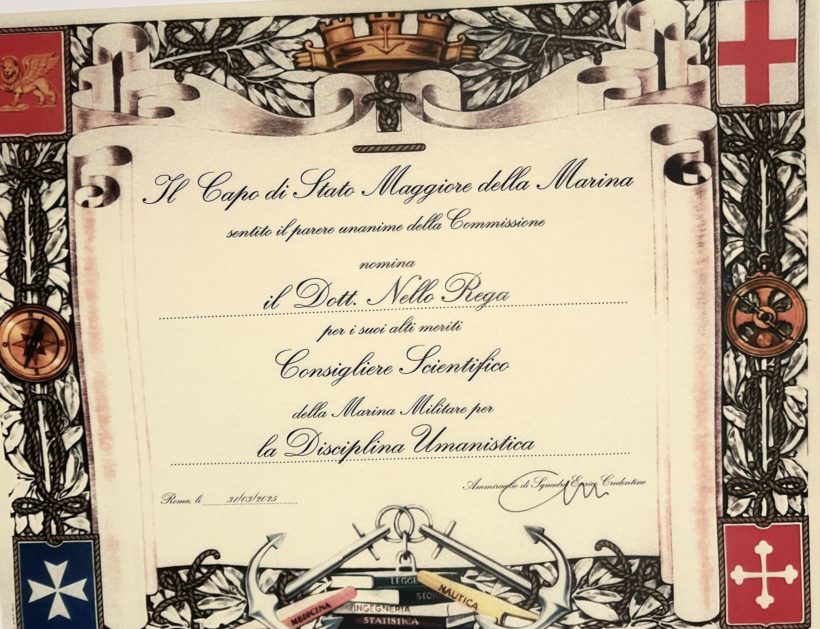 Il Capo di Stato Maggiore della Marina
sentito il parere unanime della Commissione
nomina
il Dott. Nello Rega
per i suoi alti meriti
Consigliere Scientifico
della Marina Militare per
la Disciplina Umanistica
Ammiraglio di Squadra Enrico Credentino
Roma, li 31/03/2025
LEGGE
NAUTICA
MEDICINA
INGEGNERIA
STATISTICA